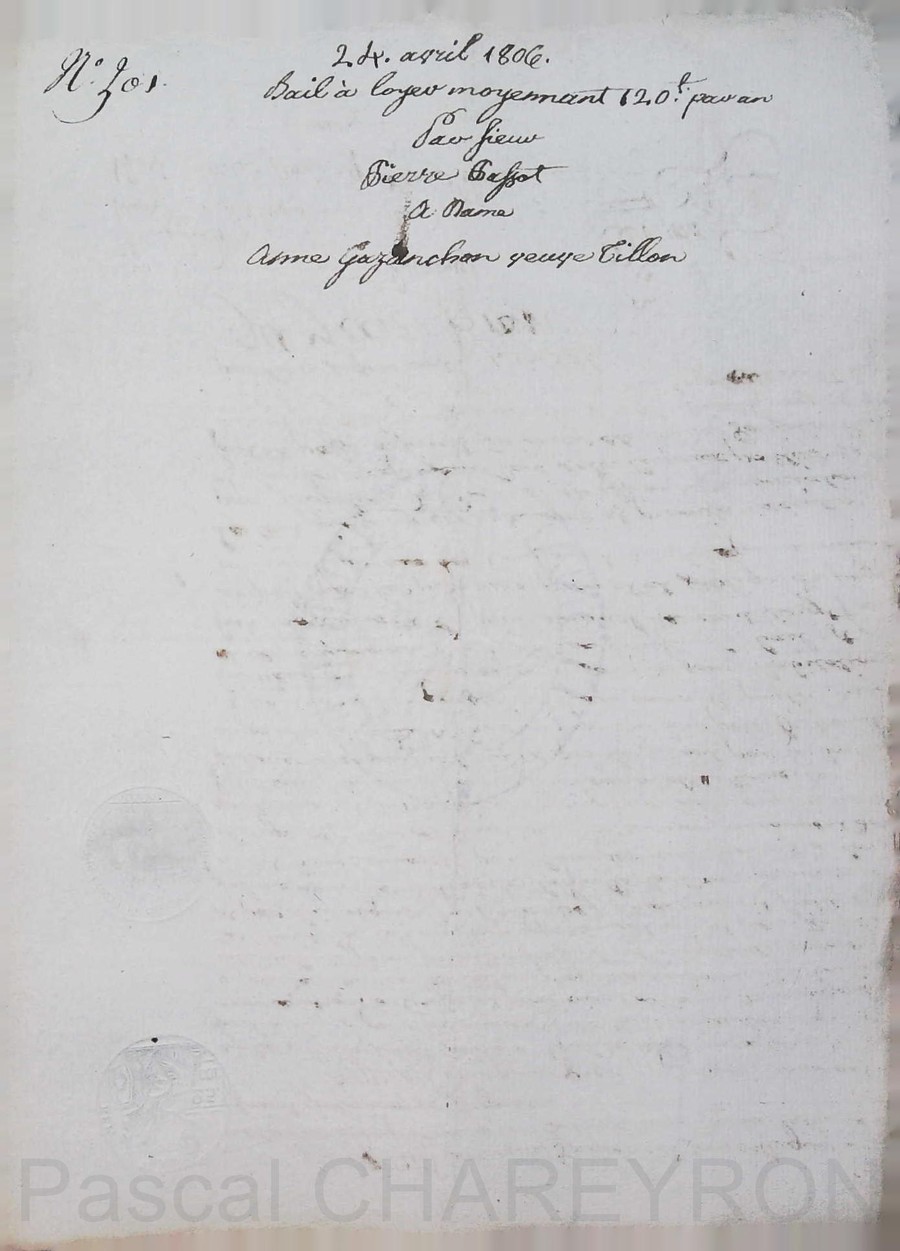 N.° 201.
24. avril 1806.
Bail à loyer moyennant 120.f par an
Par sieur
Pierre Passot
A Dame
Anne Gazanchon veuve Tillon
Pascal CHAREYRON